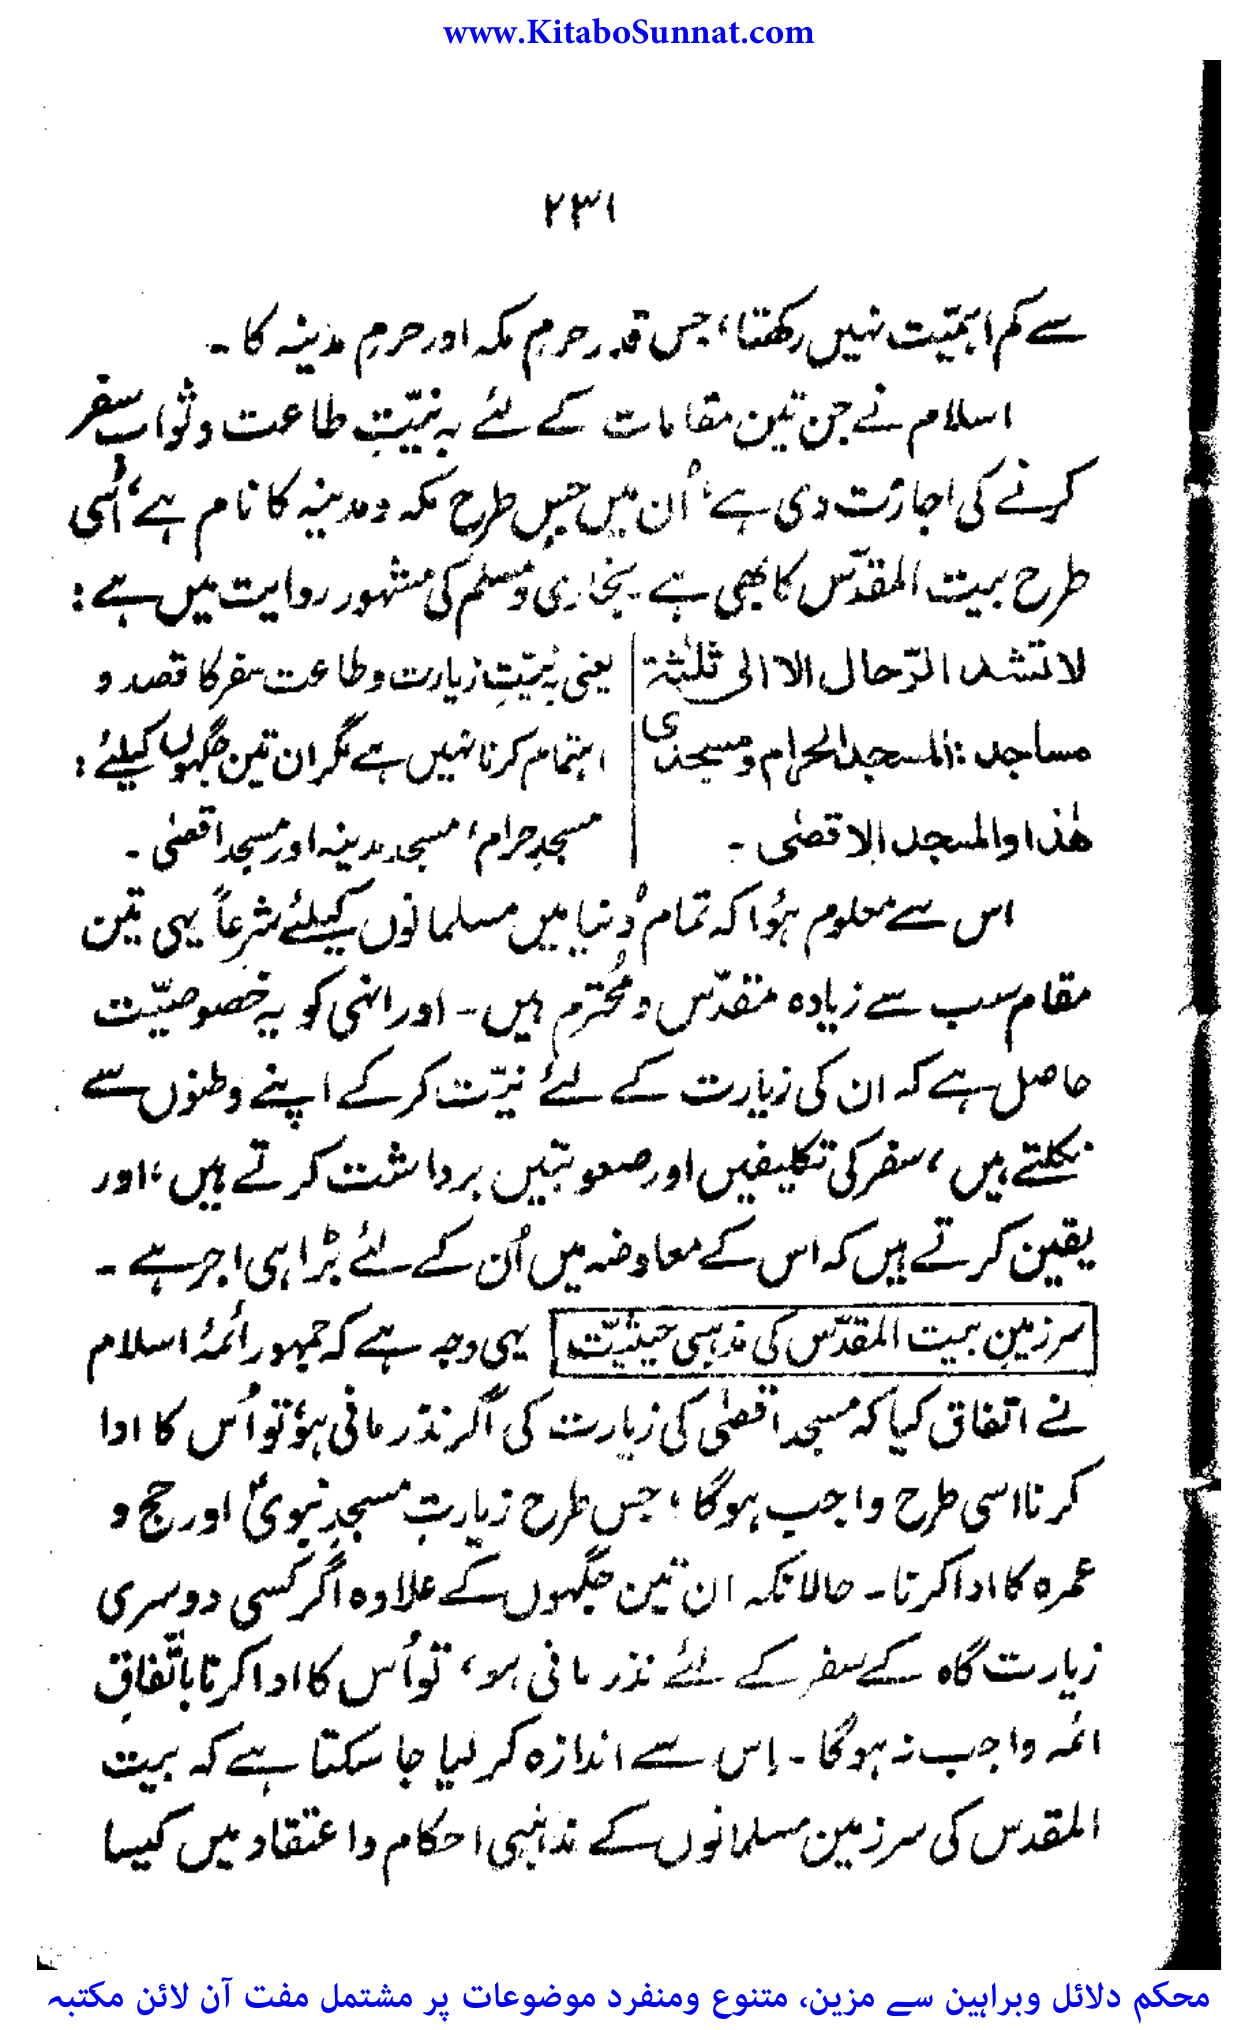 www.KitaboSunnat.com
۲۳۱
سے کم اہمیّت نہیں رکھتا، جس قدر حرمِ مکہ اور حرمِ مدینہ کا ۔
اسلام نے جن تین مقامات کے لئے بہ نیّتِ طاعت و ثواب سفر
کرنے کی اجازت دی ہے، اُن میں جس طرح مکہ و مدینہ کا نام ہے، اُسی
طرح بیت المقدّس کا بھی ہے ۔ بخاری و مسلم کی مشہور روایت میں ہے :
لا تشد الرّحال الا الی ثلٰثة
مساجد : المسجد الحرام و مسجدی
هٰذا والمسجد الاقصٰی ۔
یعنی بہ نیّتِ زیارت و طاعت سفر کا قصد و
اہتمام کرنا نہیں ہے مگر ان تین جگہوں کیلئے :
مسجدِ حرام، مسجد مدینہ اور مسجد اقصٰی ۔
اس سے معلوم ہُوا کہ تمام دُنیا میں مسلمانوں کیلئے شرعاً یہی تین
مقام سب سے زیادہ مقدّس و مُحترم ہیں ۔ اور انہی کو یہ خصوصیّت
حاصل ہے کہ ان کی زیارت کے لئے نیّت کر کے اپنے وطنوں سے
نکلتے ہیں، سفر کی تکلیفیں اور صعوبتیں برداشت کرتے ہیں، اور
یقین کرتے ہیں کہ اس کے معاوضہ میں اُن کے لئے بڑا ہی اجر ہے ۔
سرزمینِ بیت المقدّس کی مذہبی حیثیّت یہی وجہ ہے کہ جمہور ائمۂ اسلام
نے اتفاق کیا کہ مسجد اقصٰی کی زیارت کی اگر نذر مانی ہو، تو اُس کا ادا
کرنا اسی طرح واجب ہوگا، جس طرح زیارتِ مسجدِ نبویؐ اور حج و
عمرہ کا ادا کرنا ۔ حالانکہ ان تین جگہوں کے علاوہ اگر کسی دوسری
زیارت گاہ کے سفر کے لئے نذر مانی ہو، تو اُس کا ادا کرنا باتّفاقِ
ائمہ واجب نہ ہوگا ۔ اِس سے اندازہ کر لیا جا سکتا ہے کہ بیت
المقدس کی سرزمین مسلمانوں کے مذہبی احکام و اعتقاد میں کیسا
محکم دلائل وبراہین سے مزین، متنوع ومنفرد موضوعات پر مشتمل مفت آن لائن مکتبہ